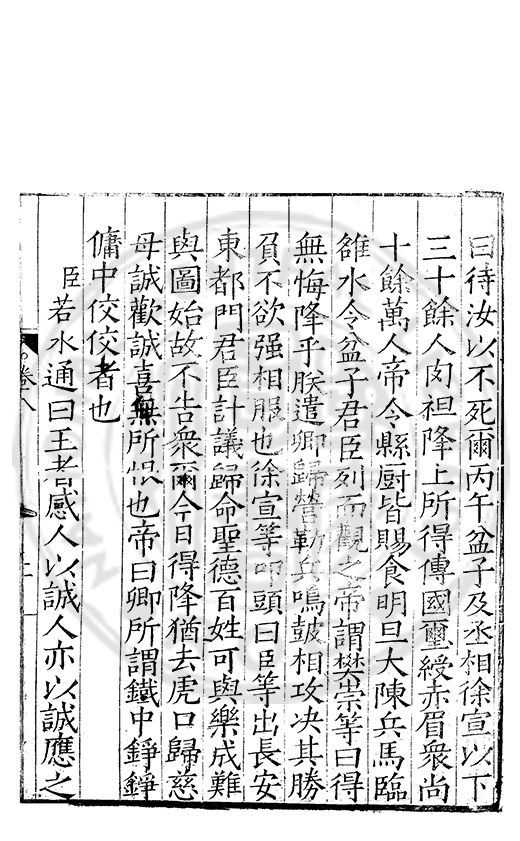 曰待汝以不死爾丙午盆子及丞相徐宣以下
三十餘人肉袒降上所得傳國璽綬赤眉衆尚
十餘萬人帝令縣厨皆賜食明旦大陳兵馬臨
雒水令盆子君臣列而觀之帝謂樊崇等曰得
無悔降乎朕遣卿歸營勒兵鳴鼓相攻决其勝
負不欲强相服也徐宣等叩頭曰臣等出長安
東都門君臣計議歸命聖德百姓可與樂成難
與圖始故不告衆爾今日得降猶去虎口歸慈
母誠歡誠喜無所恨也帝曰卿所謂鐵中錚錚
傭中佼佼者也
臣若水通曰王者感人以誠人亦以誠應之
卷八